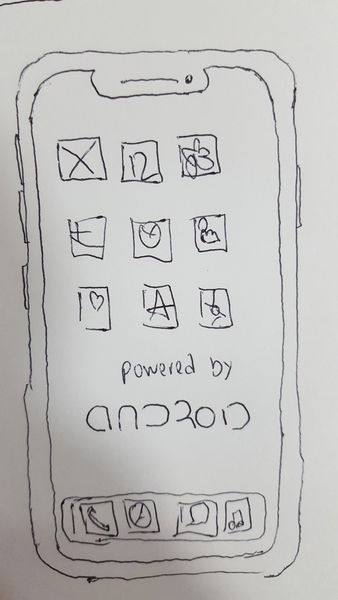 X n
A
powered by
ANDROID